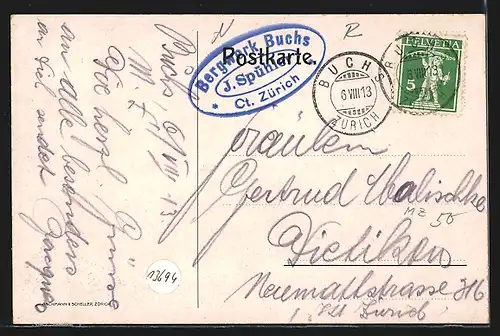 Postkarte.
Bergwerk Buchs
J. Spühler
* Ct. Zürich *
BUCHS
6 VIII 13
ZÜRICH
HELVETIA
5
Buchs 6/VIII 13
M. L.
Die herzl. Grüsse
an alle besonders
an Dich sendet
Fräulein
Gertrud Walischke
Dietikon
Neumattstrasse 316
Kt. Zürich
MZ 50
13694